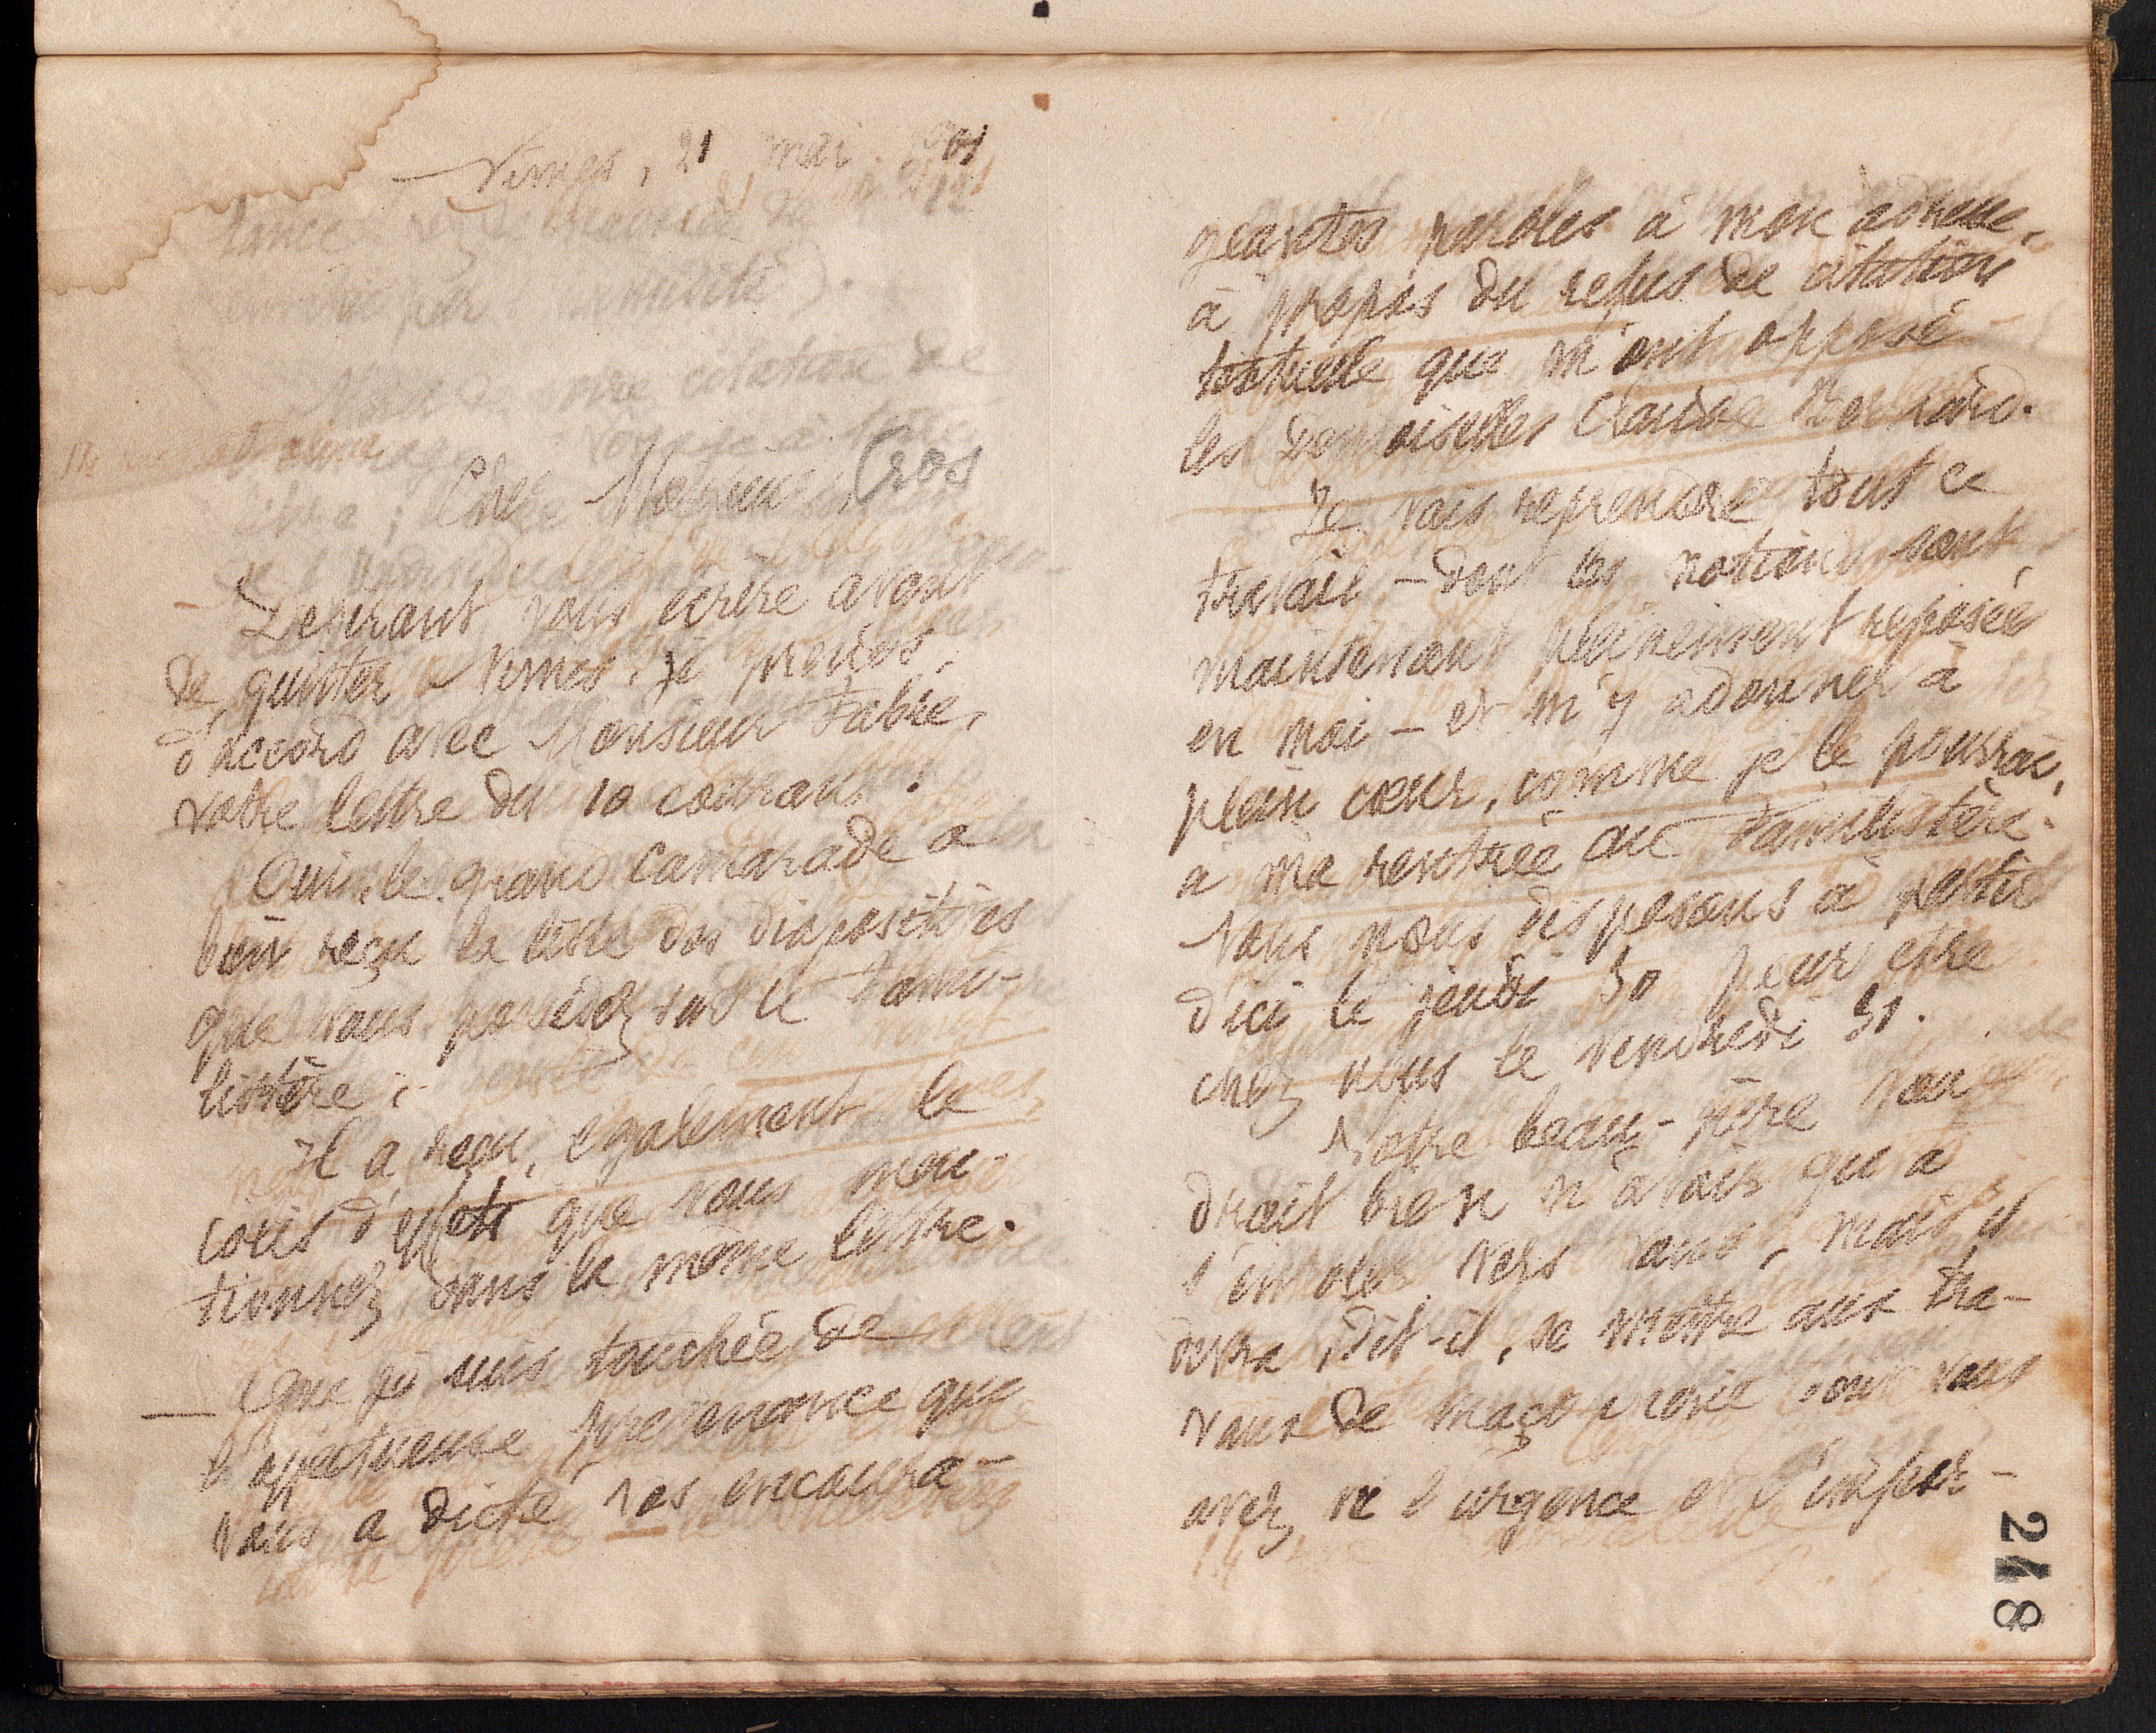 Nimes, 21 mai 1901
Cher Monsieur Cros
Désirant vous écrire avant
de quitter Nimes, je prends,
d'accord avec Monsieur Fabre,
votre lettre du 10 courant.
Oui, le grand camarade a
bien reçu la liste des diapositives
que vous possédez sur le Fami-
listère.
Il a reçu, également le
colis d'effets que vous men-
tionnez dans la même lettre.
— Que je suis touchée de
l'affectueuse prévenance que
vous a dicté vos encoura-
geantes paroles à mon adresse,
à propos du refus de citation
textuelle que m'ont opposé
les Demoiselles Claude Bernard.
Je vais reprendre tout ce
travail - dont les notions sont
maintenant pleinement reposées
en moi - et m'y adonner à
plein cœur, comme je le pourrai,
à ma rentrée au Familistère.
Nous nous disposons à partir
d'ici le jeudi 30 pour être
chez nous le vendredi 31.
Notre beau-père vou
drait bien n'avoir qu'à
s'envoler vers vous, mais il
devra, dit-il, se mettre aux tra-
vaux de maçonnerie dont vous
avez vu l'urgence et l'impor-
248